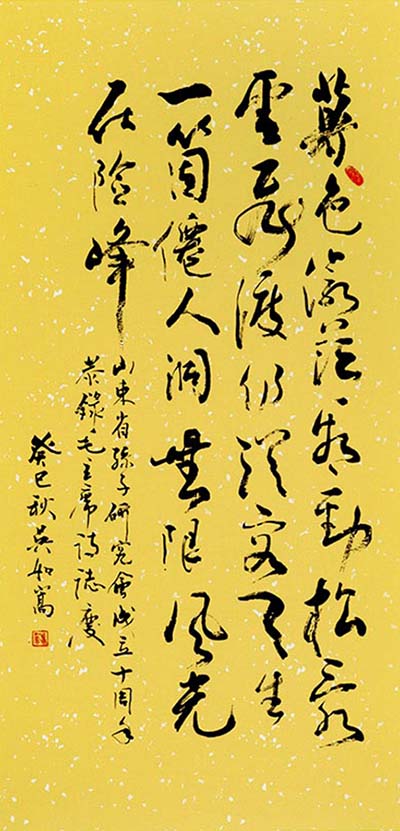 暮色蒼茫看勁松亂
雲飛渡仍從容天生
一箇僊人洞無限風光
在險峰
山東省孫子研究會成立十周年
恭錄毛主席詩誌慶
癸巳秋吳如嵩